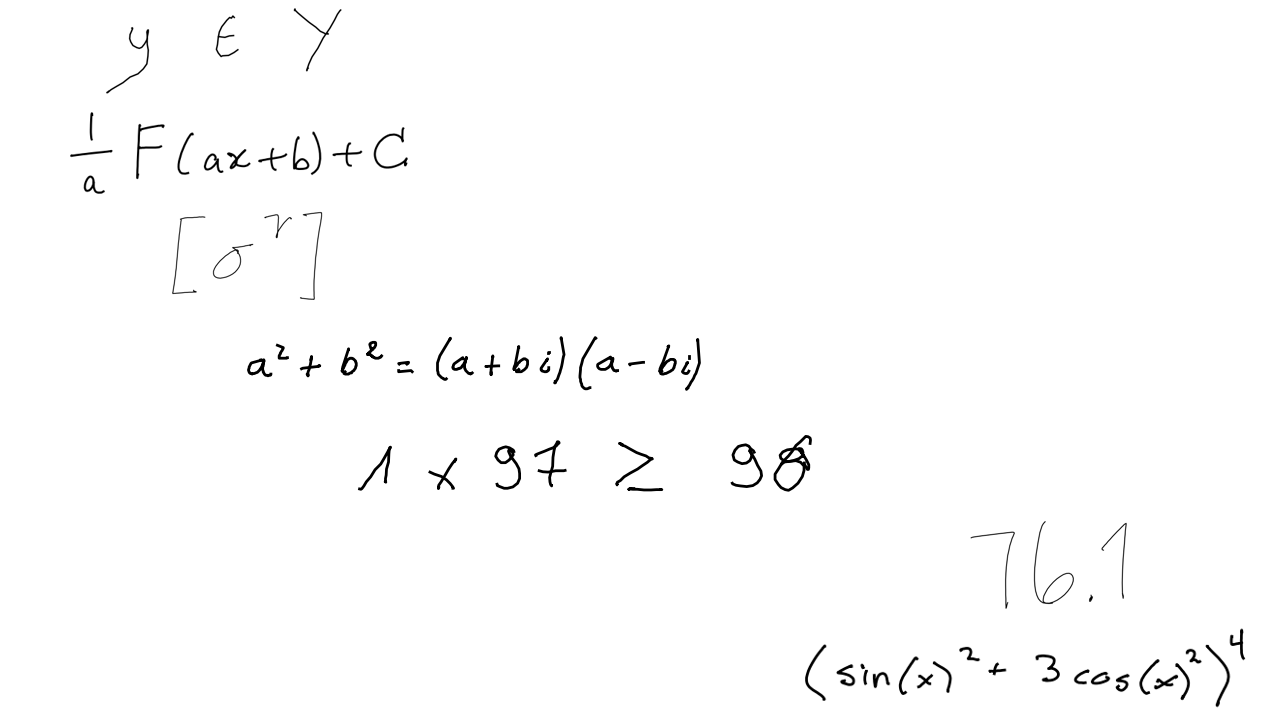 y ∈ Y
1/a F(ax+b)+C
[σ^r]
a² + b² = (a + bi)(a - bi)
1 × 97 ≥ 98
76.1
(sin(x)² + 3 cos(x)²)⁴